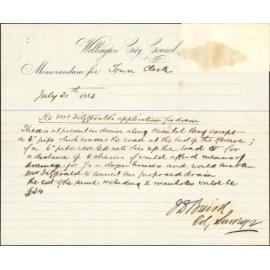 Wellington City Council
Memorandum for Town Clerk
July 20th 1883
Re Mr Fitzgerald's application for drain
There is at present no drain along Oriental Bay except
a 6" pipe which crosses the road at the end of the Reserve;
if a 6" pipe were laid up the road for
a distance of 6 chains it would afford means of
drainage for ½ a dozen houses and would enable
Mr Fitzgerald to connect his proposed drain
the cost of the same including 2 manholes would be
£24
J D Baird
City Surveyor